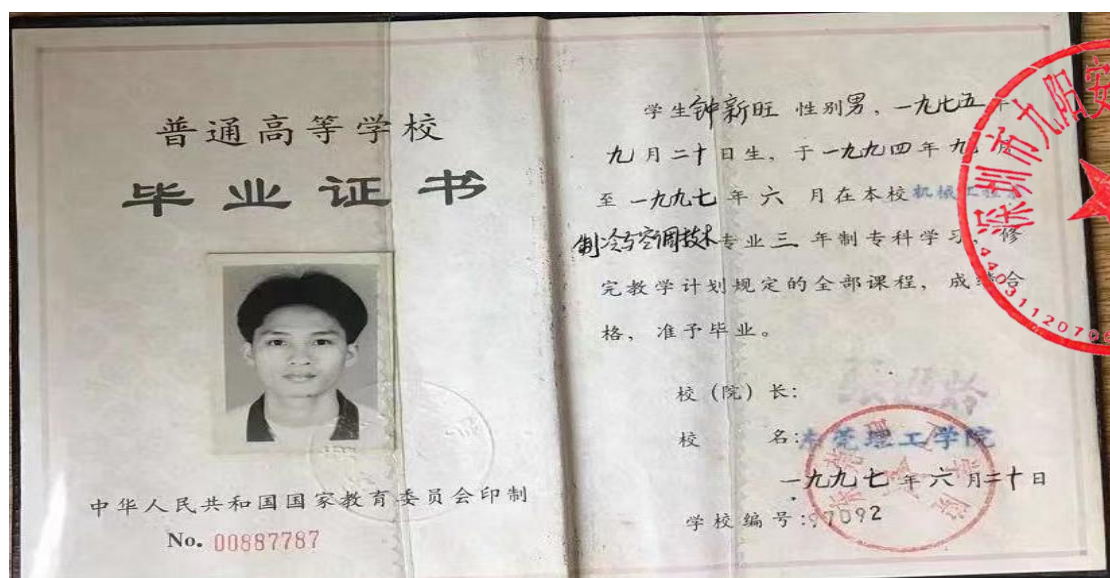 普通高等学校
毕业证书
中华人民共和国国家教育委员会印制
No. 00887787
学生钟新旺 性别男，一九七五年
九月二十日生，于一九九四年九月
至一九九七年六 月在本校机械工程系
制冷与空调技术专业三年制专科学习，修
完教学计划规定的全部课程，成绩合
格，准予毕业。
校（院）长：
校 名：东莞理工学院
一九九七年六月二十日
学校编号：97092
深圳市九阳安
44031120796